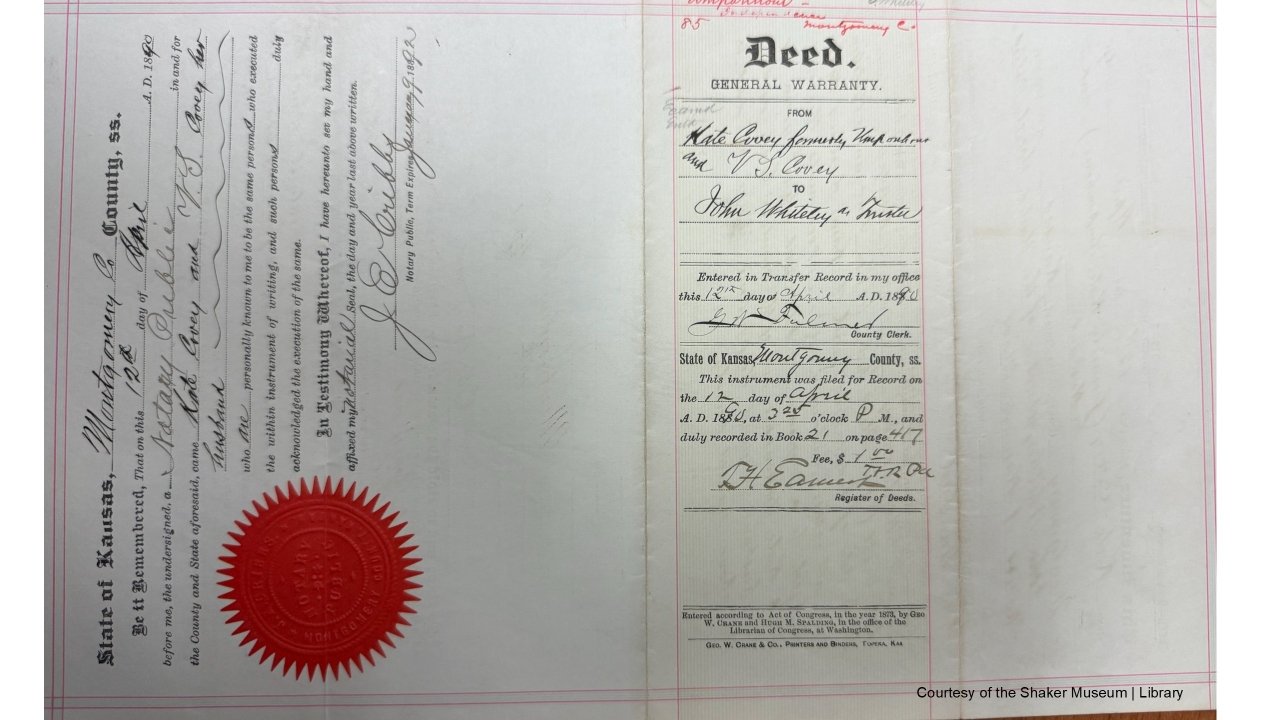 State of Kansas, Montgomery Co County, ss.
Be it Remembered, That on this 12th day of April A. D. 1890
before me, the undersigned, a Notary Public in and for
the County and State aforesaid, came Kate Covey and V. S. Covey her
husband
who are personally known to me to be the same persons who executed
the within instrument of writing, and such persons duly
acknowledged the execution of the same.
In Testimony Whereof, I have hereunto set my hand and
affixed my Notarial Seal, the day and year last above written.
J E Cribby
Notary Public, Term Expires January 9 1892
NOTARY
PUBLIC
MONTGOMERY
Independence
85 Montgomery C.
Deed.
GENERAL WARRANTY.
FROM
Kate Covey formerly
and V S. Covey
TO
John Whiteley as Trustee
Entered in Transfer Record in my office
this 12th day of April A. D. 1890
G W Fulmer
County Clerk.
State of Kansas, Montgomery County, ss.
This instrument was filed for Record on
the 12 day of April
A. D. 1890, at 3 25 o'clock P M., and
duly recorded in Book 21 on page 417
Fee, $ 1 00
T. H. Earnest
Register of Deeds.
Entered according to Act of Congress, in the year 1873, by GEO
W. CRANE and HUGH M. SPALDING, in the office of the
Librarian of Congress, at Washington.
GEO. W. CRANE & CO., PRINTERS AND BINDERS, TOPEKA, KAS
Courtesy of the Shaker Museum | Library